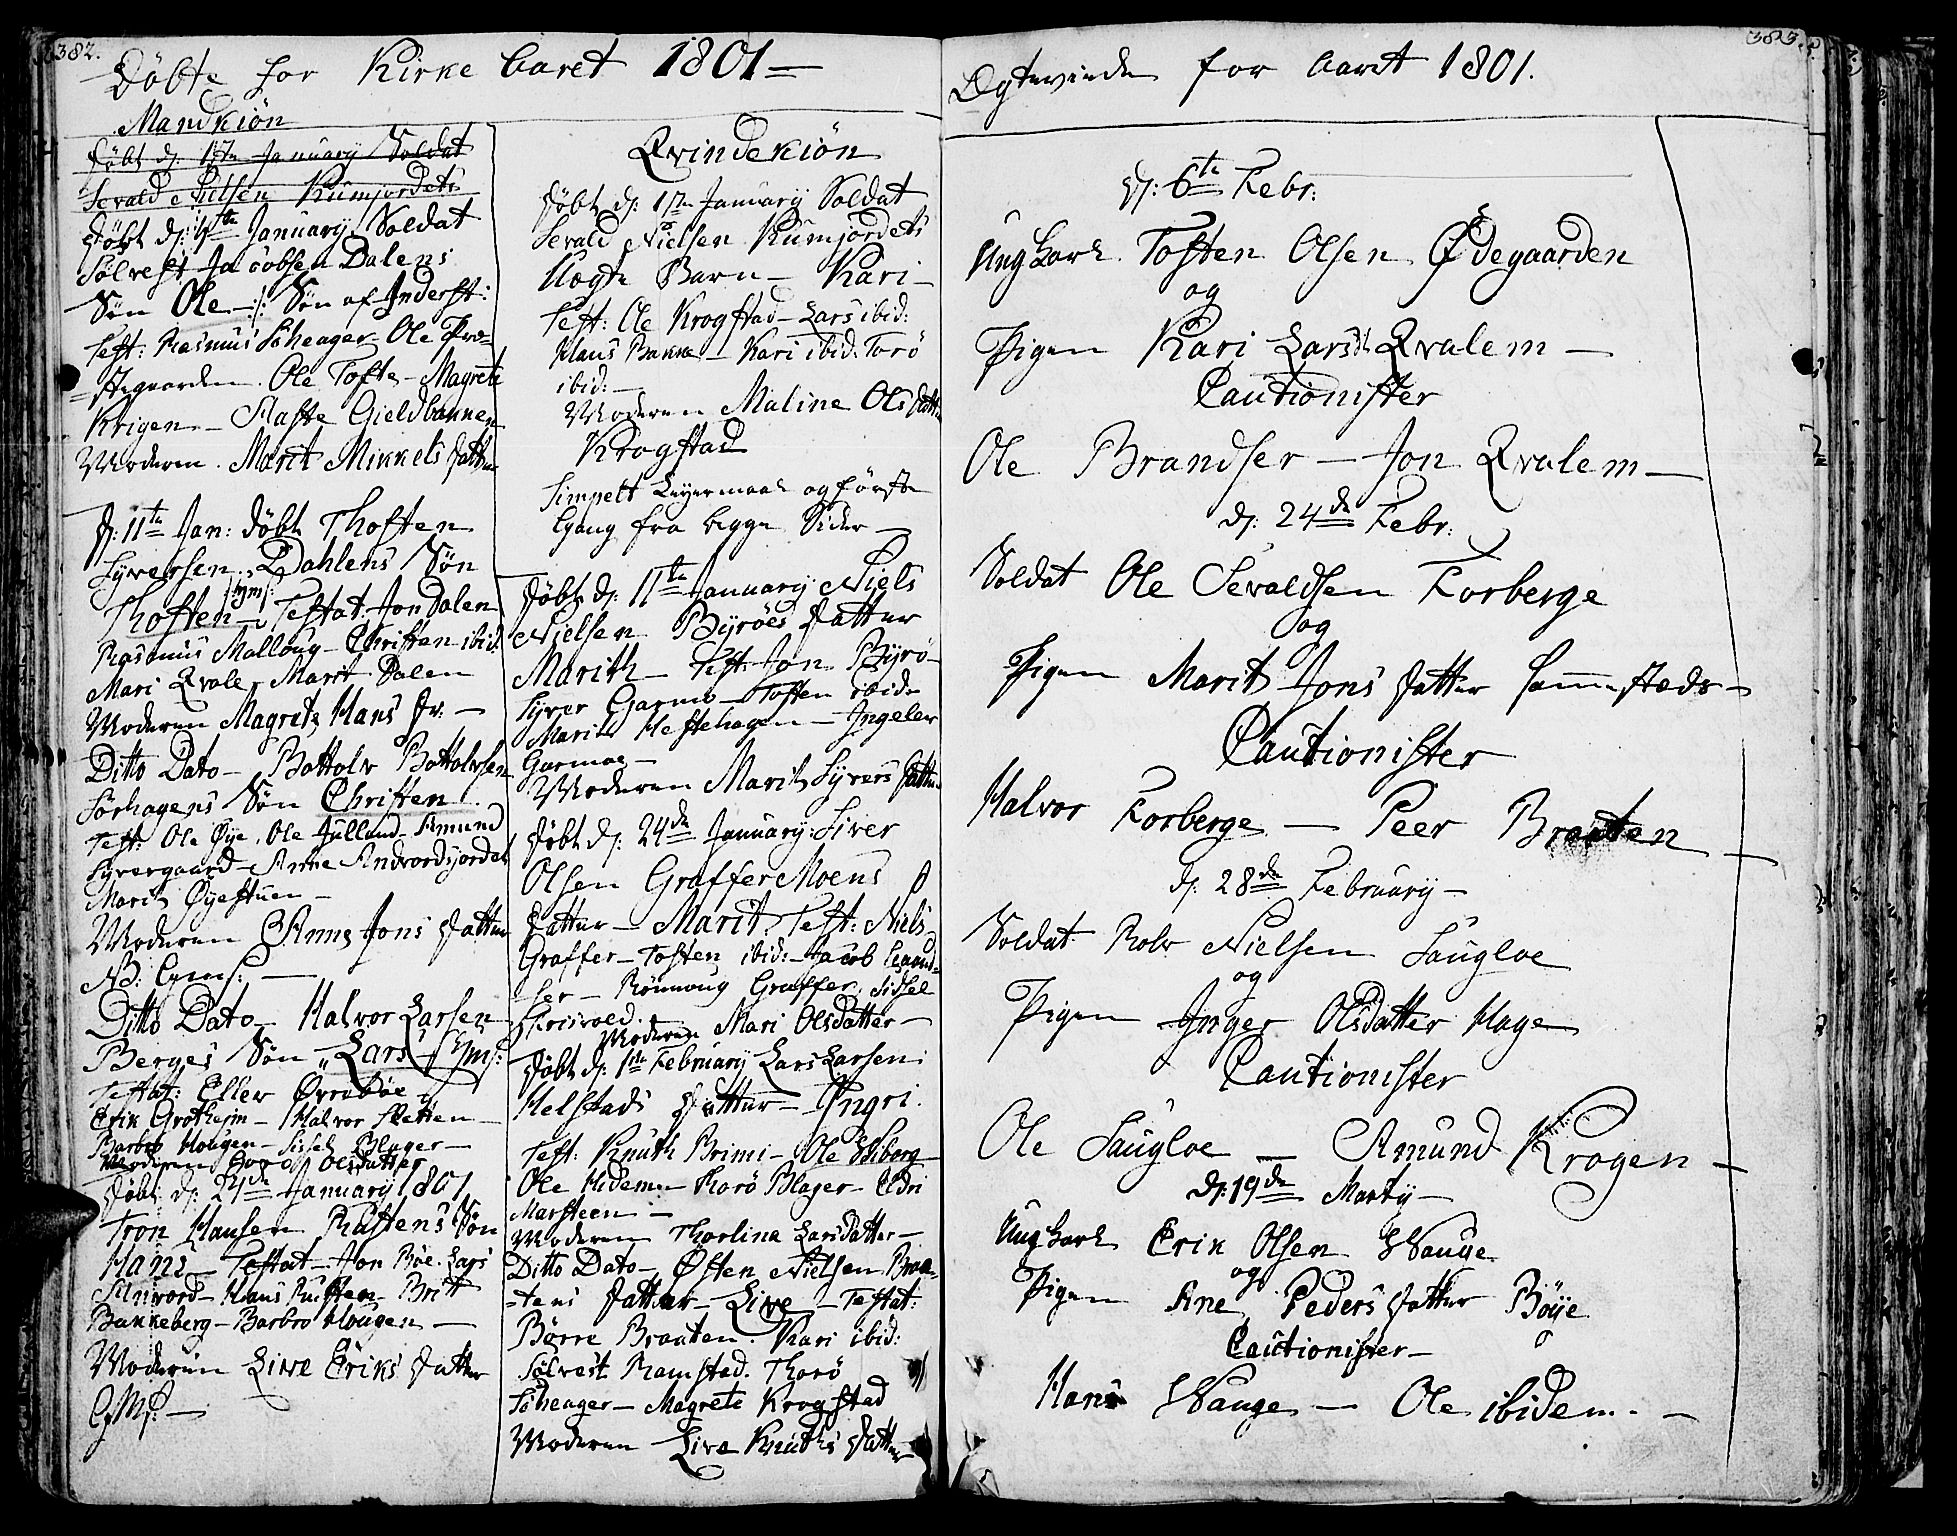 382.
Døbte for Kirke Aaret 1801
Mandkiøn
Døbt d: 1ste January Soldat
Sevald Nielsen Kumjordets
Døbt d: 4de January Soldat
Sølvest Jacobsen Dalens
Søn Ole -/: Søn af Inderst:
Test: Rasmus Søheager - Ole Præ=
=stegaarden. Ole Tofte - Magrete
Krigen - Maste Gieldbakken
Moderen. Marit Mikkels datter
D: 11te Jan: døbt Thosten
Syversen Dahlens Søn
Thosten - Testat: Jon Dalen
Rasmus Malloug - Christen ibid:
Mari Qvale - Marit Dalen
Moderen Magrete Hans dr: -
Ditto Dato - Bottolv Bottolvsen
Sørhagens Søn Christen
Test: Ole Øye, Ole Julland - Amund
Syvergaard - Anne Andvordjordet
Marit Øyestuen -
Moderen Anne Jons datter
Ditto Dato - Halvor Larsen
Berges Søn Lars
Testat: Eller Øvrebøe
Erik Grotheim - Halvor Sletten -
Barbro Hougen - Sissel Blager -
Moderen Olsdatter
Døbt d: 24de January 1801
Tron Hansen Rustens Søn
Hans - Testat - Jon Bøe. Lars
Anvord - Hans Rusten - Britt
Bakkeberg - Barbro Hougen -
Moderen Live Eriks datter
Qvindekiøn
Døbt d: 1ste January Soldat
Sevald Nielsen Kumjordets
Uægte Barn - Kari -
Test: Ole Krogstad - Lars ibid:
Klaus Bakke - Kari ibid: Torø
ibid: -
Moderen Maline Ols datter
Krogstad
Simpelt Leyermaal og første
Gang fra begge Sider -
Døbt d: 11te January Niels
Nielsen Byrøes datter
Marith - Test: Jon Byrø -
Syver Garmo - Tosten ibidem
Marit Heftehagen - Ingelev
Garmoe -
Moderen Marit Syvers datter
Døbt d: 24de January: Siver
Olsen Graffer Moens
datter - Marit. Test: Niels
Graffer - Tosten ibid: - Jacob
Rønnoug Graffer, Sidsel
Moderen Mari Olsdatter -
Døbt d: 1ste February Lars Larsen
Helstads datter - Ingri.
Test: Knuth Brimi - Ole Wiborg
Ole Hidem - Thorø Blager - Eldri
Marsteen -
Moderen Thorlina Larsdatter -
Ditto Dato - Østen Nielsen Braa=
=tens datter - Live - Testat:
Børre Braaten. Kari ibid:
Sølvest Ramstad. Thorø
Søheager - Magrete Krogstad
Moderen Live Knuths datter
383.
Ægteviede for Aaret 1801.
D: 6te Febr:
Ungkarl Tosten Olsen Ødegaarden
og
Pigen Kari Larsdr Qvalem -
Cautionister
Ole Brandser - Jon Qvalem -
d: 24de Febr:
Soldat Ole Sevaldsen Forberge
og
Pigen Marit Jons datter sammesteds -
Cautionister
Halvor Forberge - Peer Braaten -
d: 28de February -
Soldat Rolv Nielsen Saugloe
og
Pigen Inger Olsdatter Hage
Cautionister
Ole Saugloe - Amund Krogen -
D: 19de Marty -
Ungkarl Erik Olsen Wange
og
Pigen Ane Peders datter Bøye
Cautionister -
Hans Wange - Ole ibidem. -